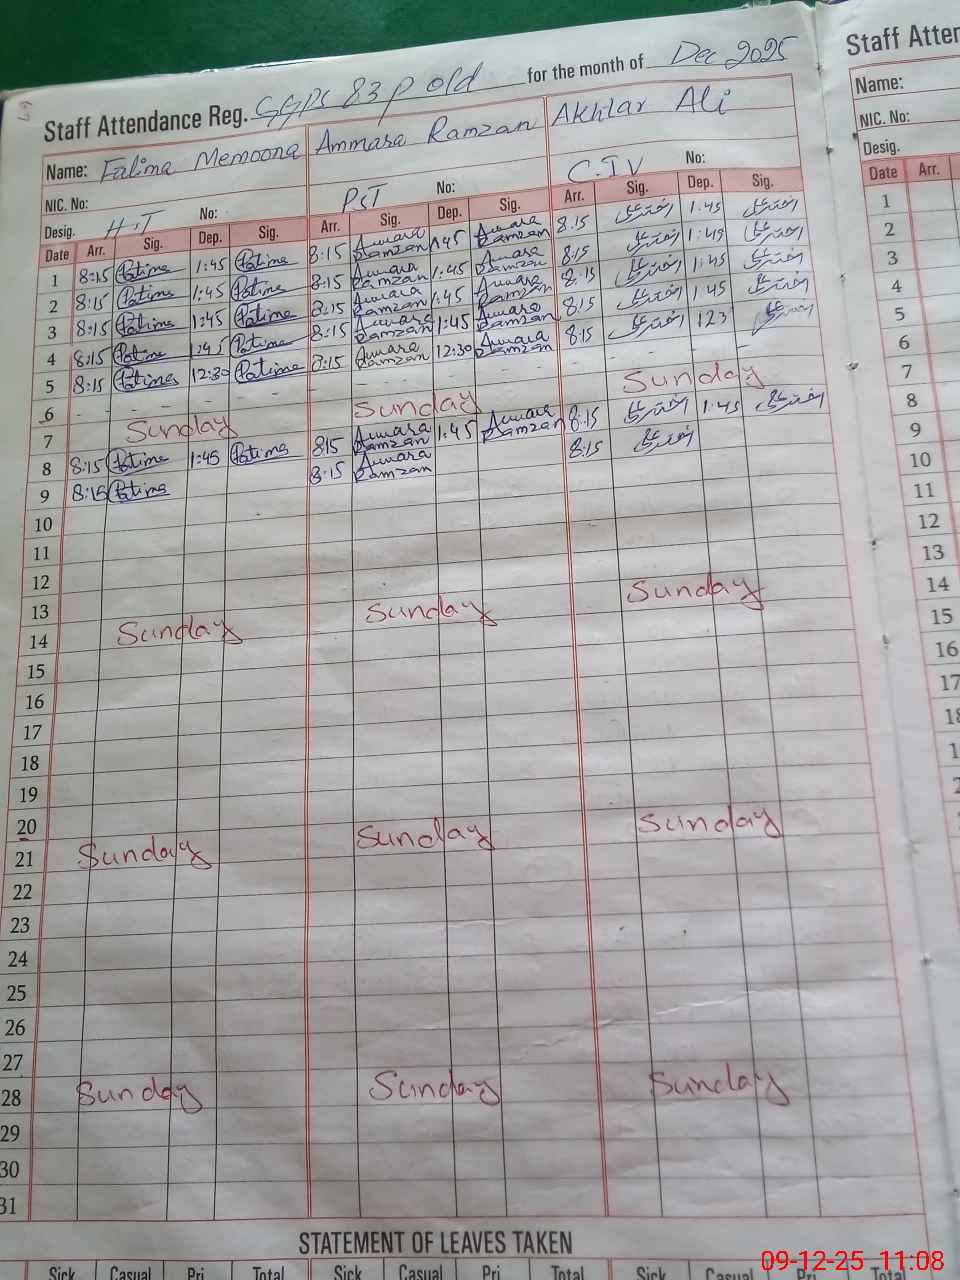 Staff Attendance Reg. GGPS 83 P old for the month of Dec 2025
Name: Fatima Memoona Ammara Ramzan Akhtar Ali
NIC. No:
Desig. H.T No: PST No: C.IV No:
Date Arr. Sig. Dep. Sig. Arr. Sig. Dep. Sig. Arr. Sig. Dep. Sig.
1 8:15 Fatima 1:45 Fatima 8:15 Ammara Ramzan 1:45 Ammara Ramzan 8:15 اختر علی 1:45 اختر علی
2 8:15 Fatima 1:45 Fatima 8:15 Ammara Ramzan 1:45 Ammara Ramzan 8:15 اختر علی 1:45 اختر علی
3 8:15 Fatima 1:45 Fatima 8:15 Ammara Ramzan 1:45 Ammara Ramzan 8:15 اختر علی 1:45 اختر علی
4 8:15 Fatima 1:45 Fatima 8:15 Ammara Ramzan 1:45 Ammara Ramzan 8:15 اختر علی 1:45 اختر علی
5 8:15 Fatima 12:30 Fatima 8:15 Ammara Ramzan 12:30 Ammara Ramzan 8:15 اختر علی اختر علی
6 - - - - - - - - - - - -
7 Sunday Sunday Sunday
8 8:15 Fatima 1:45 Fatima 8:15 Ammara Ramzan 1:45 Ammara Ramzan 8:15 اختر علی 1:45 اختر علی
9 8:15 Fatima 8:15 Ammara Ramzan 8:15 اختر علی
10
11
12
13
14 Sunday Sunday Sunday
15
16
17
18
19
20
21 Sunday Sunday Sunday
22
23
24
25
26
27
28 Sunday Sunday Sunday
29
30
31
STATEMENT OF LEAVES TAKEN
Sick Casual Pri Total Sick Casual Pri Total Sick Casual Pri Total
Staff
Name:
NIC. No:
Desig.
Date Arr.
1
2
3
4
5
6
7
8
9
10
11
12
13
14
15
16
17
09-12-25 11:08